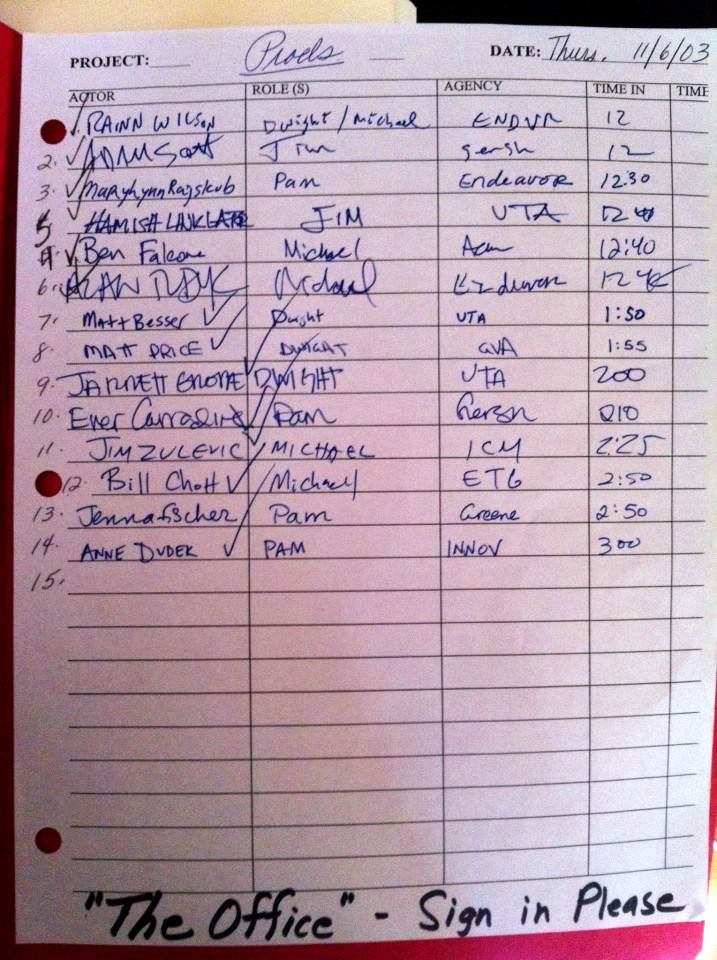 PROJECT: Prods DATE: Thurs. 11/6/03
ACTOR ROLE (S) AGENCY TIME IN TIME
1. RAINN WILSON Dwight / Michael ENDVR 12
2. ADAM SCOTT Jim gersh 12
3. MaryLynn Rajskub Pam Endeavor 12:30
5 HAMISH LINKLATER JIM UTA 12
4. Ben Falcone Michael 12:40
6. ALAN TUDYK Michael Endeavor 12 45
7. Matt Besser Dwight UTA 1:50
8. MATT PRICE DWIGHT GVA 1:55
9. JARRETT GRODE DWIGHT UTA 200
10. Ever Carradine Pam Gersh 210
11. JIM ZULEVIC MICHAEL ICM 2:25
12. Bill Chott Michael ETG 2:50
13. Jenna fischer Pam Greene 2:50
14. ANNE DUDEK PAM INNOV 300
15.
"The Office" - Sign in Please